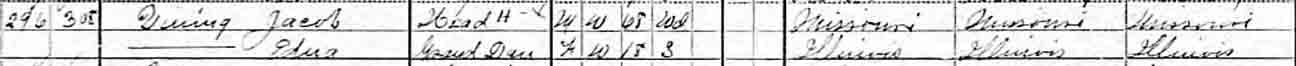 296 308 Jacob Head H M W 65 Wd Missouri Missouri Missouri
Edna Grand Dau F W 18 S Illinois Illinois Illinois